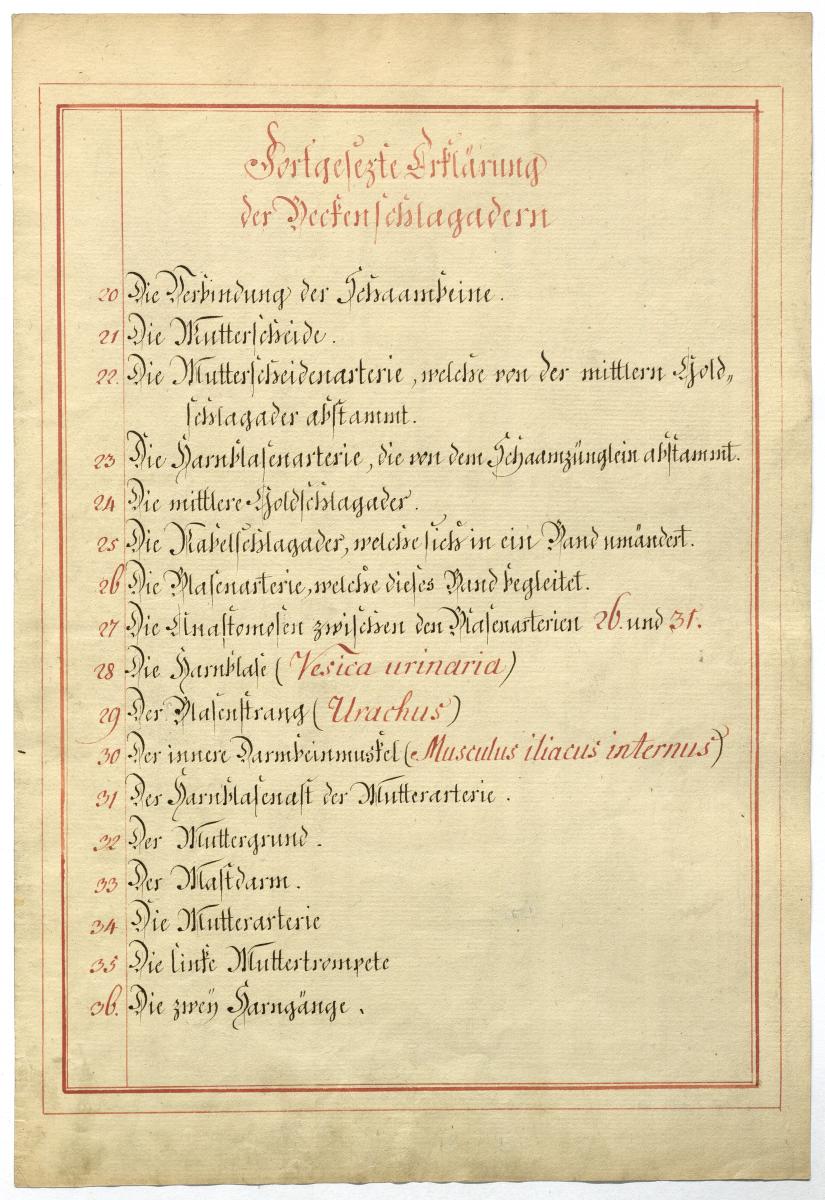 Fortgesezte Erklärung
der Beckenschlagadern
20 Die Verbindung der Schaambeine.
21 Die Mutterscheide.
22. Die Mutterscheidenarterie, welche von der mittlern Gold„
schlagader abstammt.
23 Die Harnblasenarterie, die von dem Schaamzünglein abstammt.
24 Die mittlere Goldschlagader.
25 Die Nabelschlagader, welche sich in ein Band umändert.
26 Die Blasenarterie, welche dieses Band begleitet.
27 Die Anastomosen zwischen den Blasenarterien 26. und 31.
28 Die Harnblase (Vesica urinaria)
29 Der Blasenstrang (Urachus)
30 Der innere Darmbeinmuskel (Musculus iliacus internus)
31 Der Harnblasenast der Mutterarterie.
32 Der Muttergrund.
33 Der Mastdarm.
34 Die Mutterarterie
35 Die linke Muttertrompete
36. Die zweÿ Harngänge.